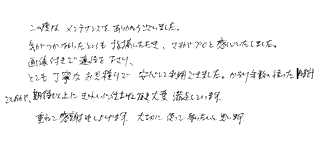 この度は メンテナンスを ありがとうございました。
気がつかなかったところも 指摘いただき、さすがプロと感じいたしました。
画像付きで 返信を下さり、
とても 丁寧な お見積りで 安心して お願いできました。かなり年数の経った
ですが、期待以上に きれいに仕上げて頂き 大変 満足しています。
重ねて 感謝申し上げます。大切に 使って 参りたいと 思います